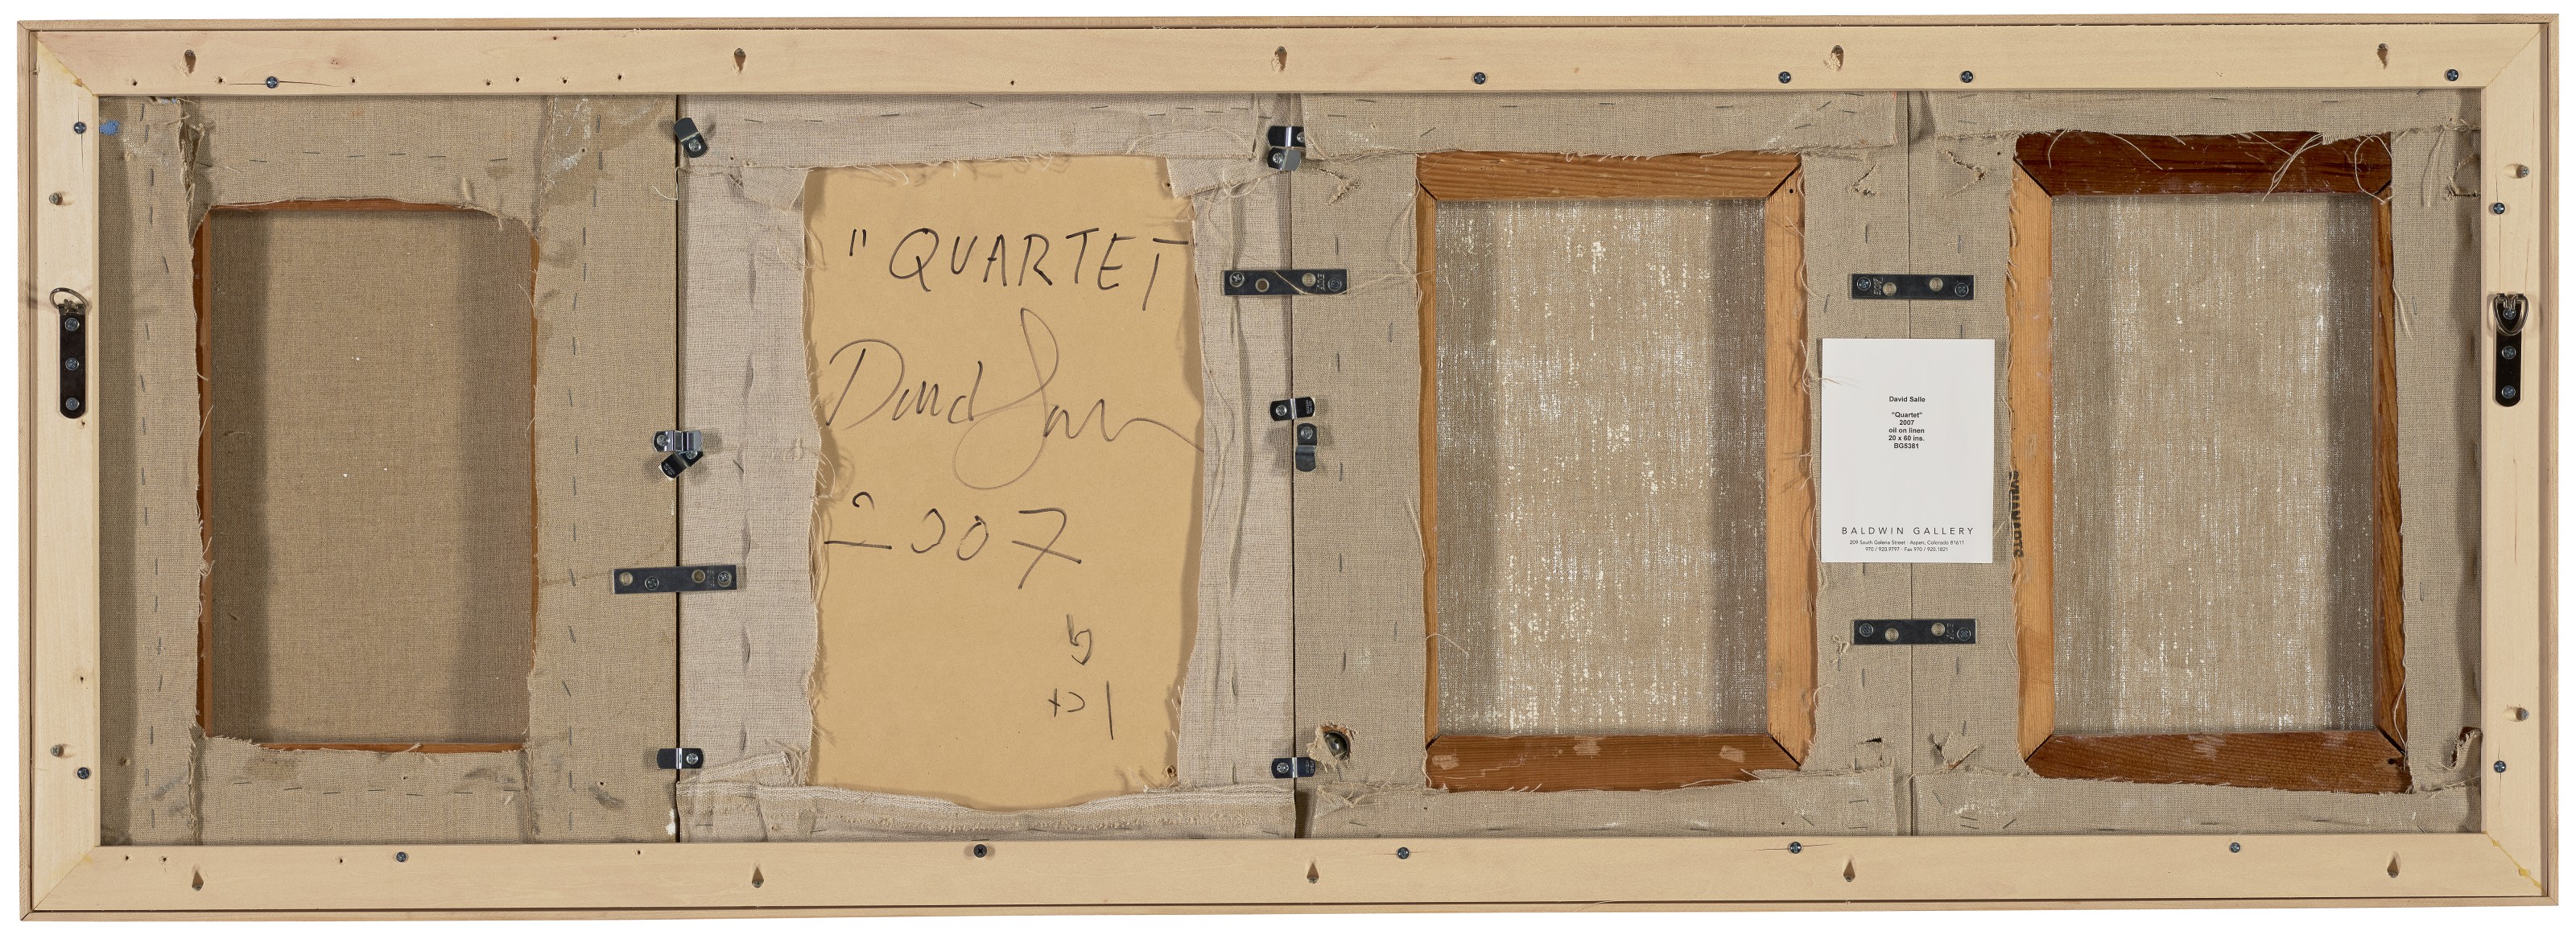 " QUARTET
David Salle
2007
David Salle
"Quartet"
2007
oil on linen
20 x 60 ins.
BG5381
BALDWIN GALLERY
209 South Galena Street · Aspen, Colorado 81611
970 / 920.9797 · Fax 970 / 920.1821